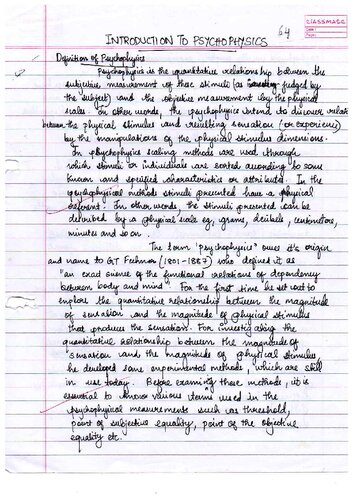 classmate
Date
Page
64
INTRODUCTION TO PSYCHOPHYSICS
Definition of Psychophysics
Psychophysics is the quantitative relationship between the
subjective measurement of these stimuli (as judged by
the subject) and the objective measurement by the physical
scales. In other words, the psychophysics intend to discover relation
between the physical stimulus and resulting sensation (or experience)
by the manipulations of the physical stimulus dimensions.
In psychophysics scaling methods are used through
which stimuli or individuals are sorted according to some
known and specified characteristics or attributes. In the
psychophysical methods stimuli presented have a physical
referent. In other words, the stimuli presented can be
described by a physical scale eg, grams, decibels, centimetres,
minutes and so on.
The term 'psychophysics' owes it's origin
and name to GT Fechner (1801-1887) who defined it as
"an exact science of the functional relations of dependency
between body and mind". For the first time he set out to
explore the quantitative relationship between the magnitude
of sensation and the magnitude of physical stimulus
that produces the sensation. For investigating the
quantitative relationship between the magnitude of
sensation and the magnitude of physical stimulus,
he developed some experimental methods, which are still
in use today. Before examining these methods, it is
essential to know various terms used in the
psychophysical measurements such as threshold,
point of subjective equality, point of the objective
equality etc.